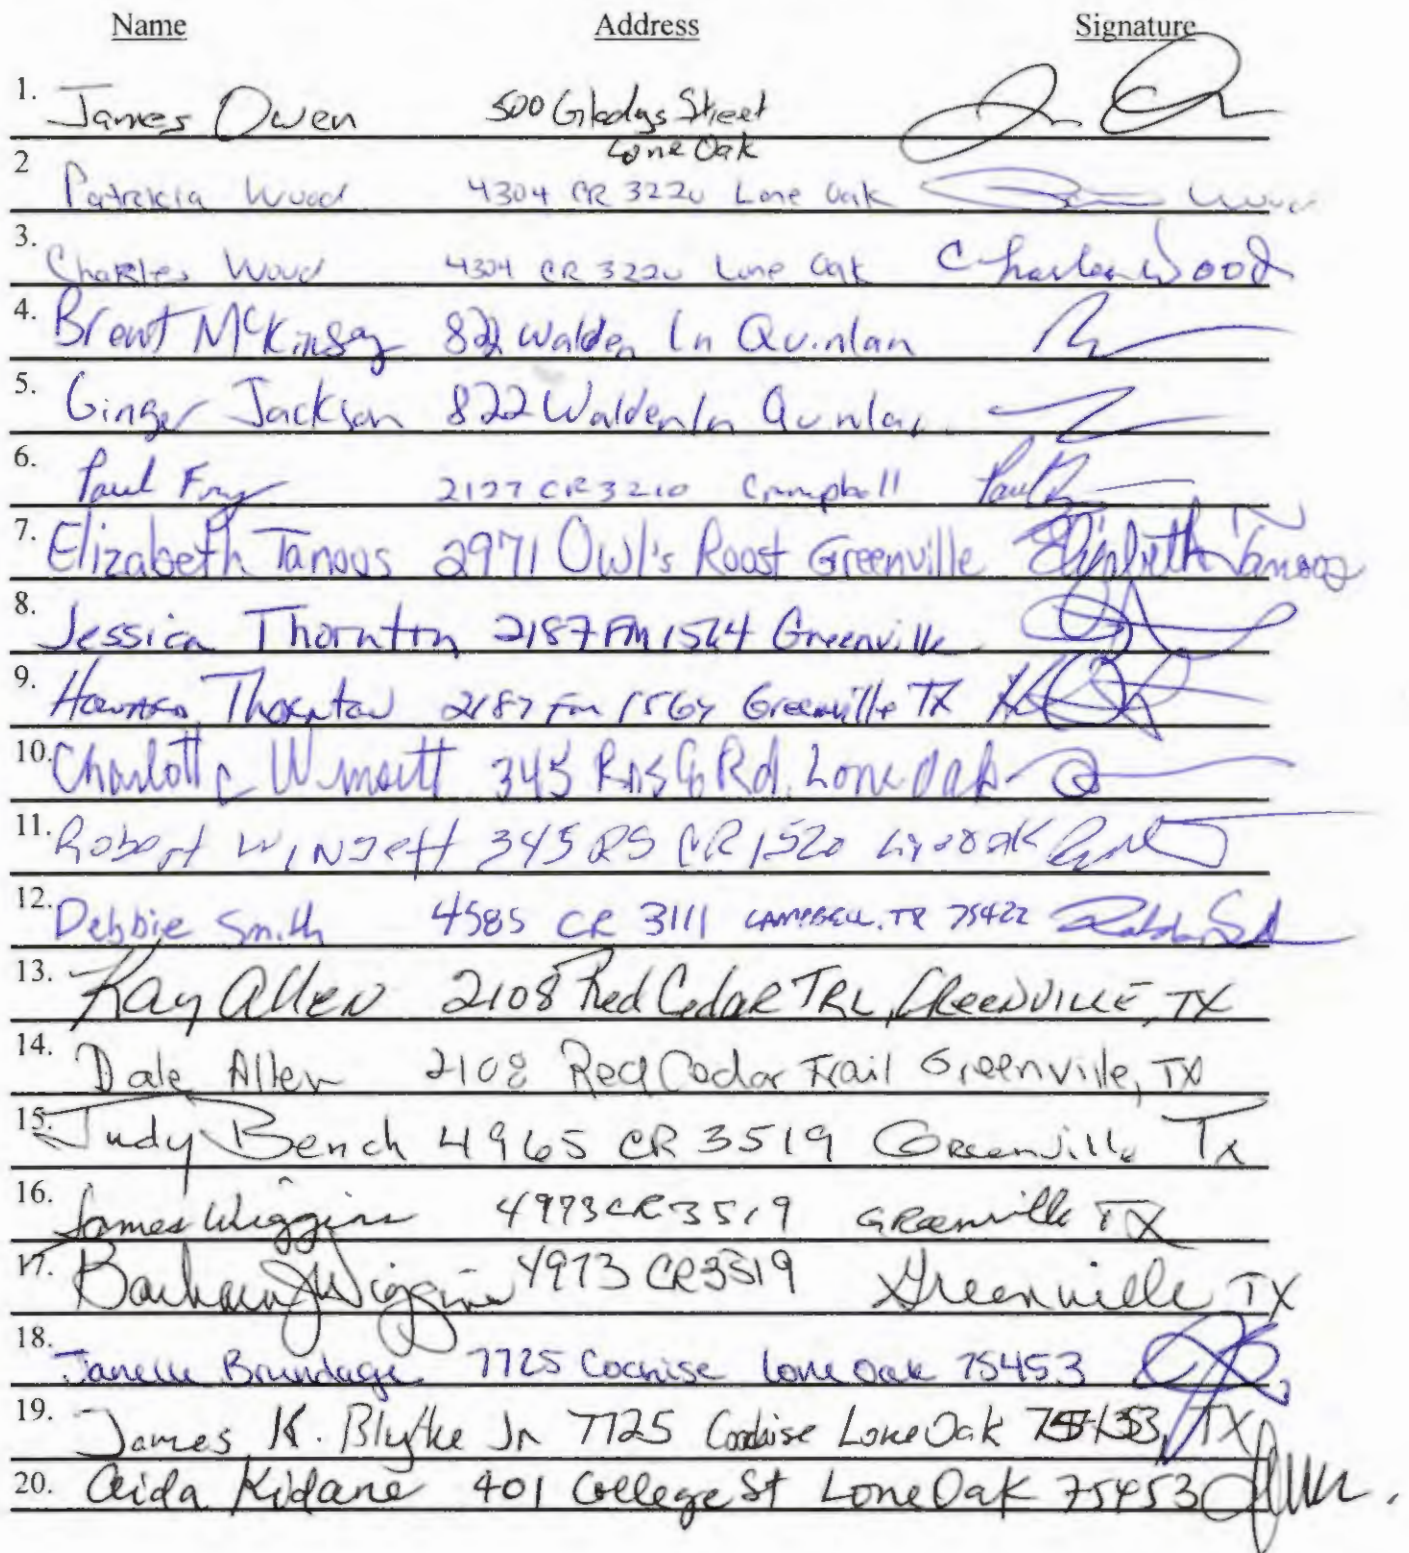 Name Address Signature
1. James Owen 500 Gladys Street
Lone Oak
2 Patricia Wood 4304 CR 3220 Lone Oak Wood
3. Charles Wood 4304 CR 3220 Lone Oak Charles Wood
4. Brent McKinsey 822 Walden Ln Quinlan
5. Ginger Jackson 822 Walden Ln Quinlan
6. Paul Fry 2127 CR 3210 Campbell Paul
7. Elizabeth Tanous 2971 Owl's Roost Greenville Elizabeth Tanous
8. Jessica Thornton 2187 FM 1564 Greenville
9. Howard Thornton 2187 Fm 1564 Greenville TX
10. Charlotte 345 Rd. Lone Oak
11. Robert 345 RS CR 1520
12. Debbie Smith 4585 CR 3111 CAMPBELL, TX 75422
13. Kay Allen 2108 Red Cedar TRL, GREENVILLE, TX
14. Dale Allen 2108 Red Cedar Trail Greenville, TX
15. Judy Bench 4965 CR 3519 Greenville Tx
16. James Wiggins 4973 CR 3519 Greenville TX
17. Barbara J Wiggins 4973 CR 3519 Greenville TX
18. Janelle Brundage 7725 Cochise Lone Oak 75453
19. James K. Blythe Jr 7725 Cochise Lone Oak 75453, TX
20. Aida Kidane 401 College St Lone Oak 75453